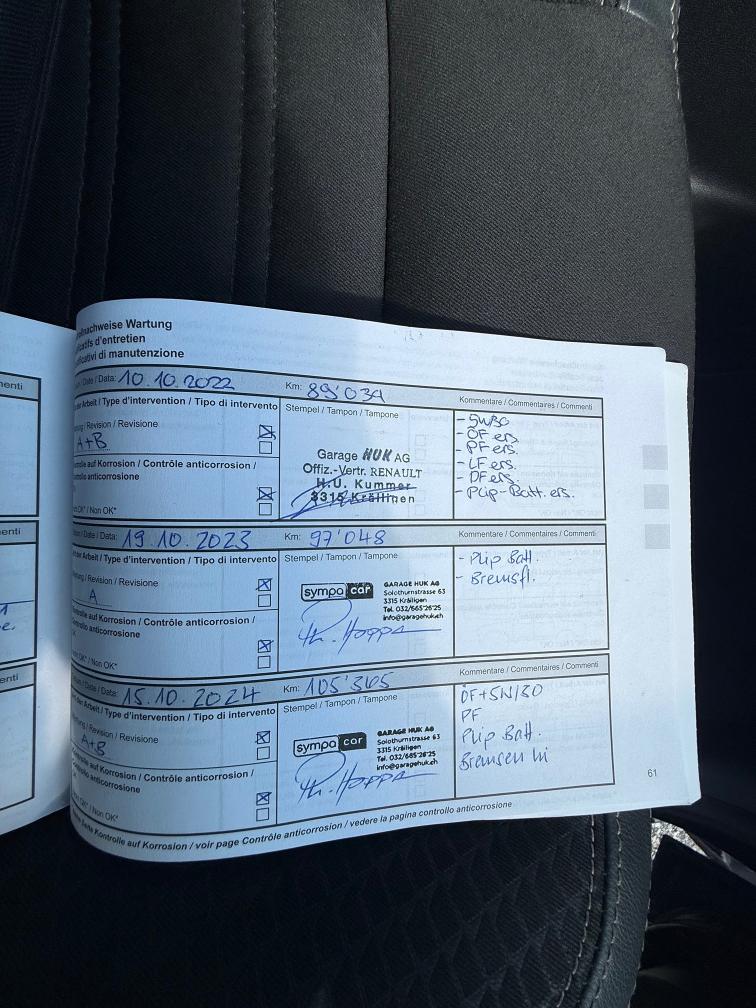 enti
ollnachweise Wartung
icatifs d'entretien
ficativi di manutenzione
Date / Data: 10.10.2022 Km: 89'034
Kommentare / Commentaires / Commenti
Arbeit / Type d'intervention / Tipo di intervento
Stempel / Tampon / Tampone
/ Revision / Revisione
A+B
auf Korrosion / Contrôle anticorrosion /
anticorrosione
OK* / Non OK*
Garage HUK AG
Offiz.-Vertr. RENAULT
H.U. Kummer
3315 Kräiligen
- ÖF ers.
- PF ers.
- LF ers.
- DF ers.
- Plip-Batt. ers.
enti
/ Date / Data: 19.10.2023 Km: 97'048
Kommentare / Commentaires / Commenti
Arbeit / Type d'intervention / Tipo di intervento
Stempel / Tampon / Tampone
/ Revision / Revisione
A
auf Korrosion / Contrôle anticorrosion /
anticorrosione
OK* / Non OK*
sympa car
GARAGE HUK AG
Solothurnstrasse 63
3315 Kräiligen
Tel. 032/665'26'25
info@garagehuk.ch
- Plip Batt.
- Bremsfl.
enti
/ Date / Data: 15.10.2024 Km: 105'365
Kommentare / Commentaires / Commenti
Arbeit / Type d'intervention / Tipo di intervento
Stempel / Tampon / Tampone
/ Revision / Revisione
A+B
auf Korrosion / Contrôle anticorrosion /
anticorrosione
OK* / Non OK*
sympa car
GARAGE HUK AG
Solothurnstrasse 63
3315 Kräiligen
Tel. 032/665'26'25
info@garagehuk.ch
PF
Plip Batt.
Bremsen hi
Kontrolle auf Korrosion / voir page Contrôle anticorrosion / vedere la pagina controllo anticorrosione
61